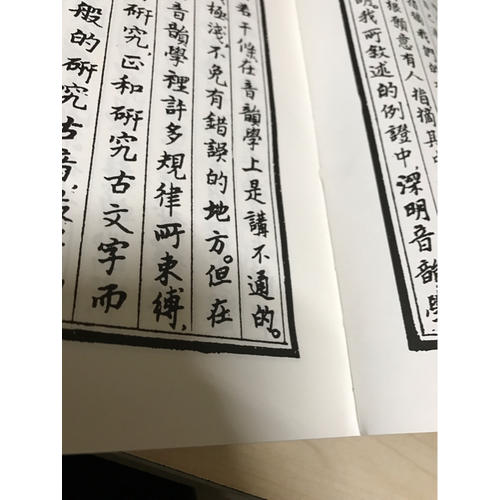 我們的
願意有人指摘其
我所敘述的例證中,深明音韻學
若干條在音韻學上是講不通的。
極淺,不免有錯誤的地方。但在
音韻學裡許多規律所束縛,
研究,正和研究古文字而
般的研究古音,